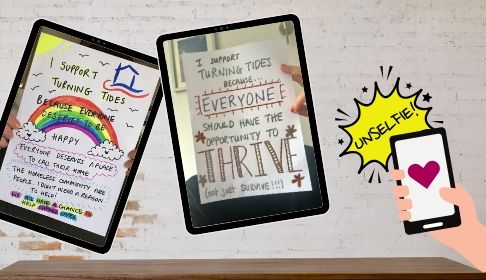 I SUPPORT
TURNING TIDES
BECAUSE EVERYONE
DESERVES TO BE
HAPPY
EVERYONE DESERVES A PLACE
TO CALL THEIR HOME
THE HOMELESS COMMUNITY ARE
PEOPLE. I DON'T NEED A REASON
TO HELP!
WE ALL HAVE A CHANCE TO
HELP
I SUPPORT
TURNING TIDES
BECAUSE...
EVERYONE
SHOULD HAVE THE
OPPORTUNITY TO
THRIVE
(not just SURVIVE!!!)
UNSELFIE!